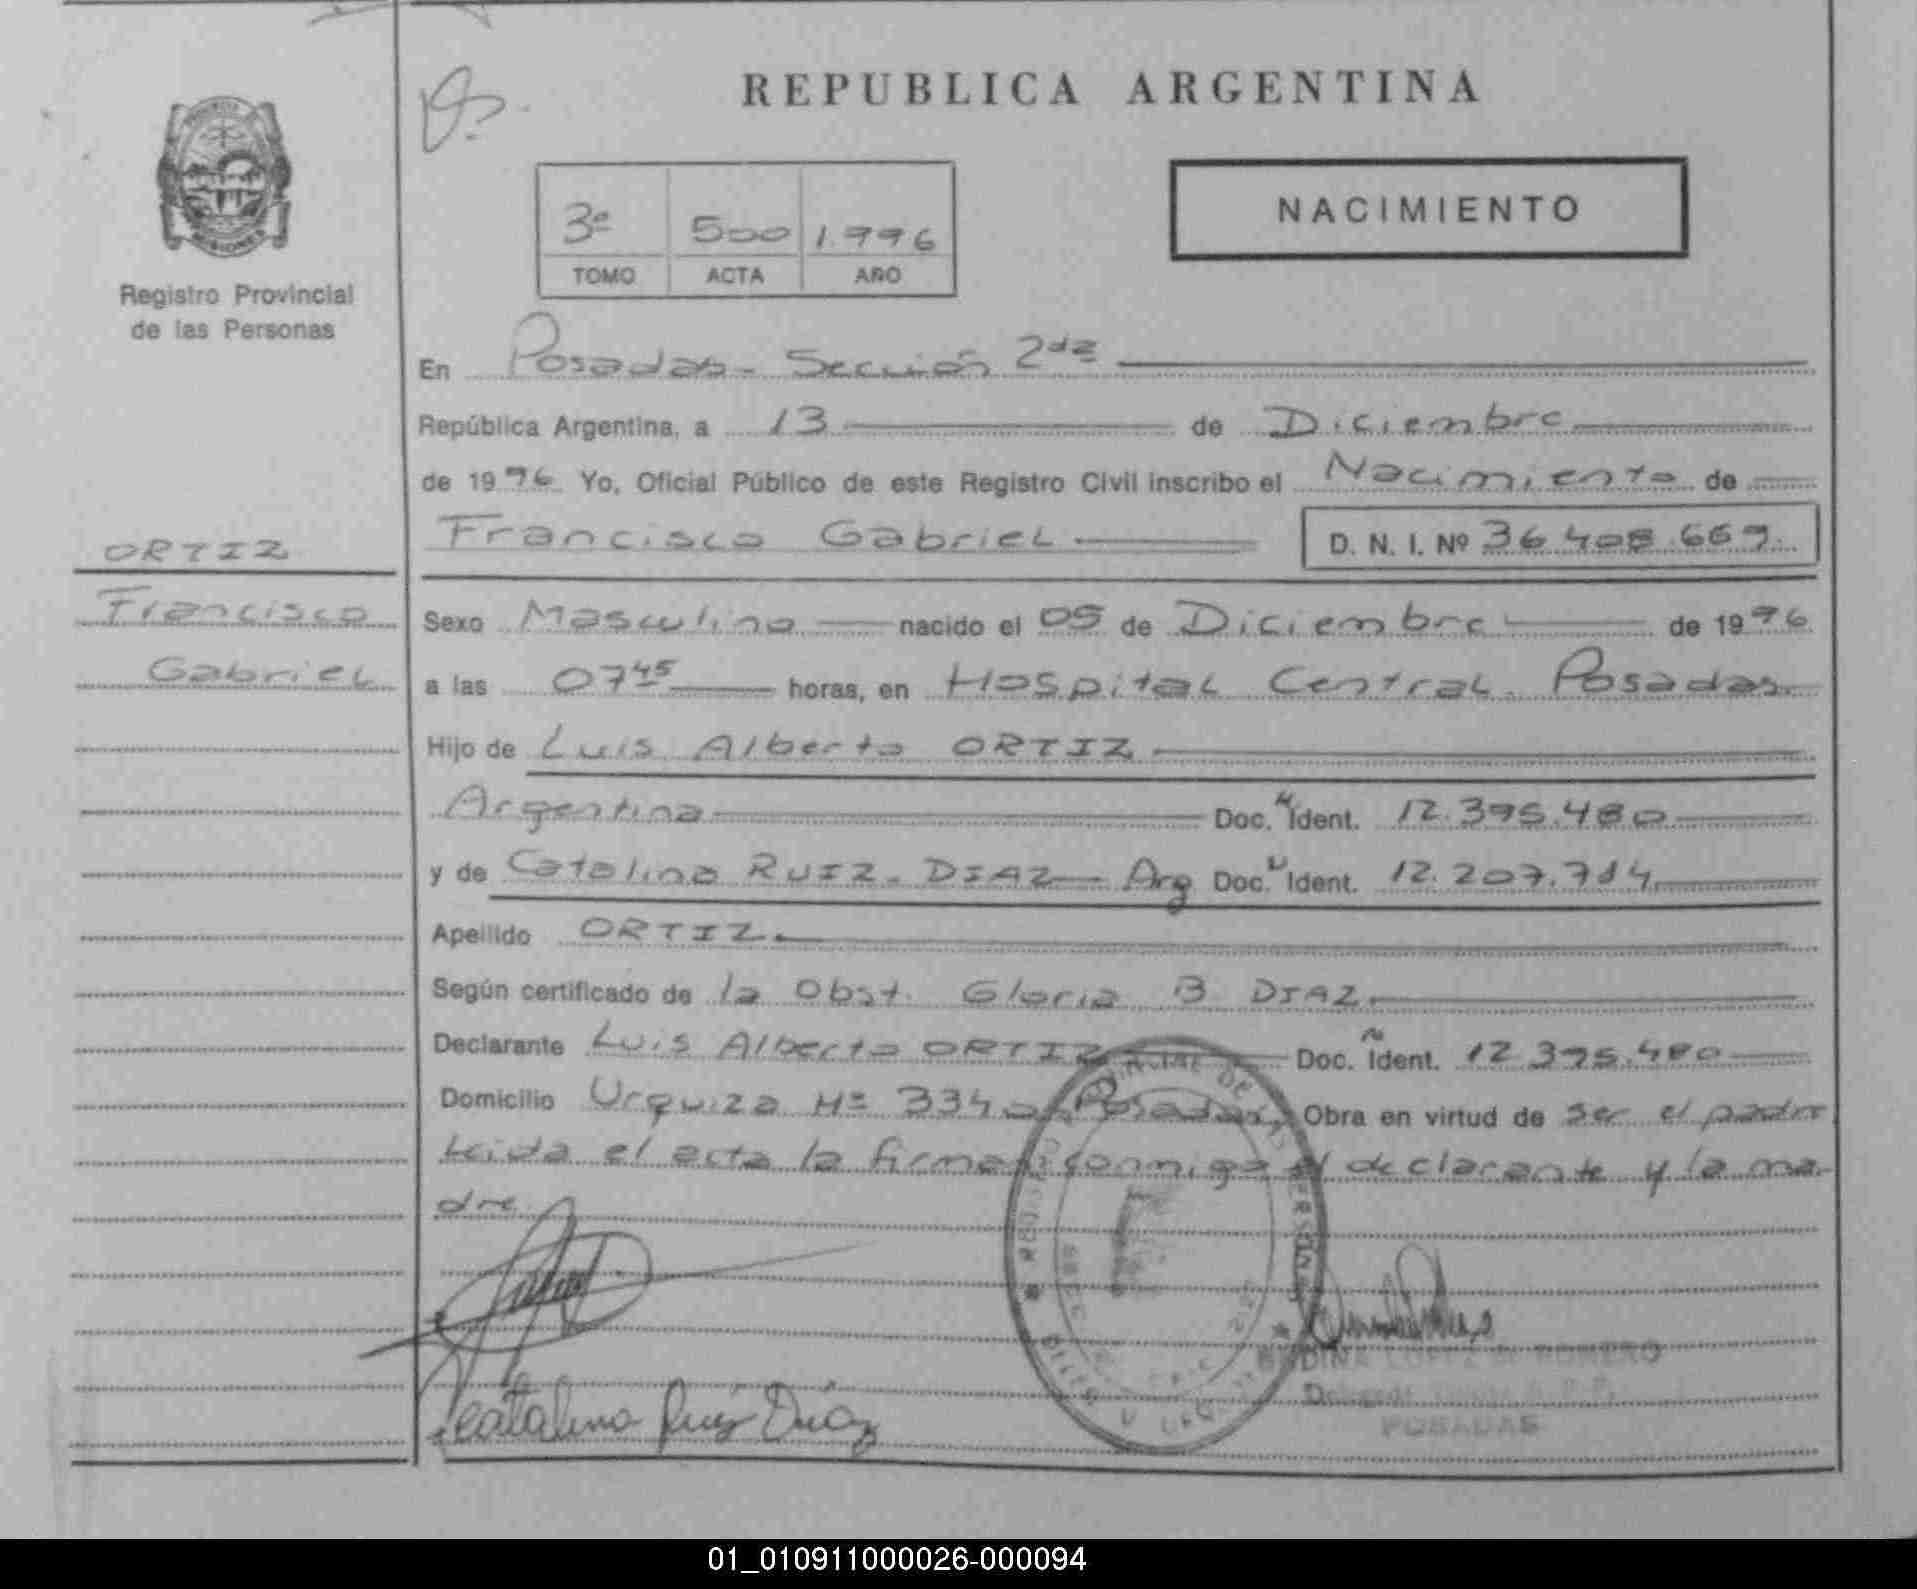 REPUBLICA ARGENTINA
NACIMIENTO
3º 500 1.996
TOMO ACTA AÑO
MISIONES
Registro Provincial
de las Personas
En Posadas - Sección 2da
República Argentina, a 13 de Diciembre
de 1996 Yo, Oficial Público de este Registro Civil inscribo el Nacimiento de
Francisco Gabriel D. N. I. Nº 36.408.669.
ORTIZ
Francisco
Gabriel
Sexo Masculino nacido el 05 de Diciembre de 1996
a las 07 45 horas, en Hospital Central. Posadas.
Hijo de Luis Alberto ORTIZ
Argentina Doc. Ident. 12.395.480
y de Catalina RUIZ - DIAZ Arg Doc. Ident. 12.207.714
Apellido ORTIZ.
Según certificado de la Obst. Gloria B DIAZ.
Declarante Luis Alberto ORTIZ Doc. Ident. 12.395.480
Domicilio Urquiza Nº 334 Posadas, Obra en virtud de ser el padre
Leida el acta la firman conmigo el declarante y la ma-
dre
Catalina Ruiz Diaz
LOPEZ de ROMERO
POSADAS
01_010911000026-000094